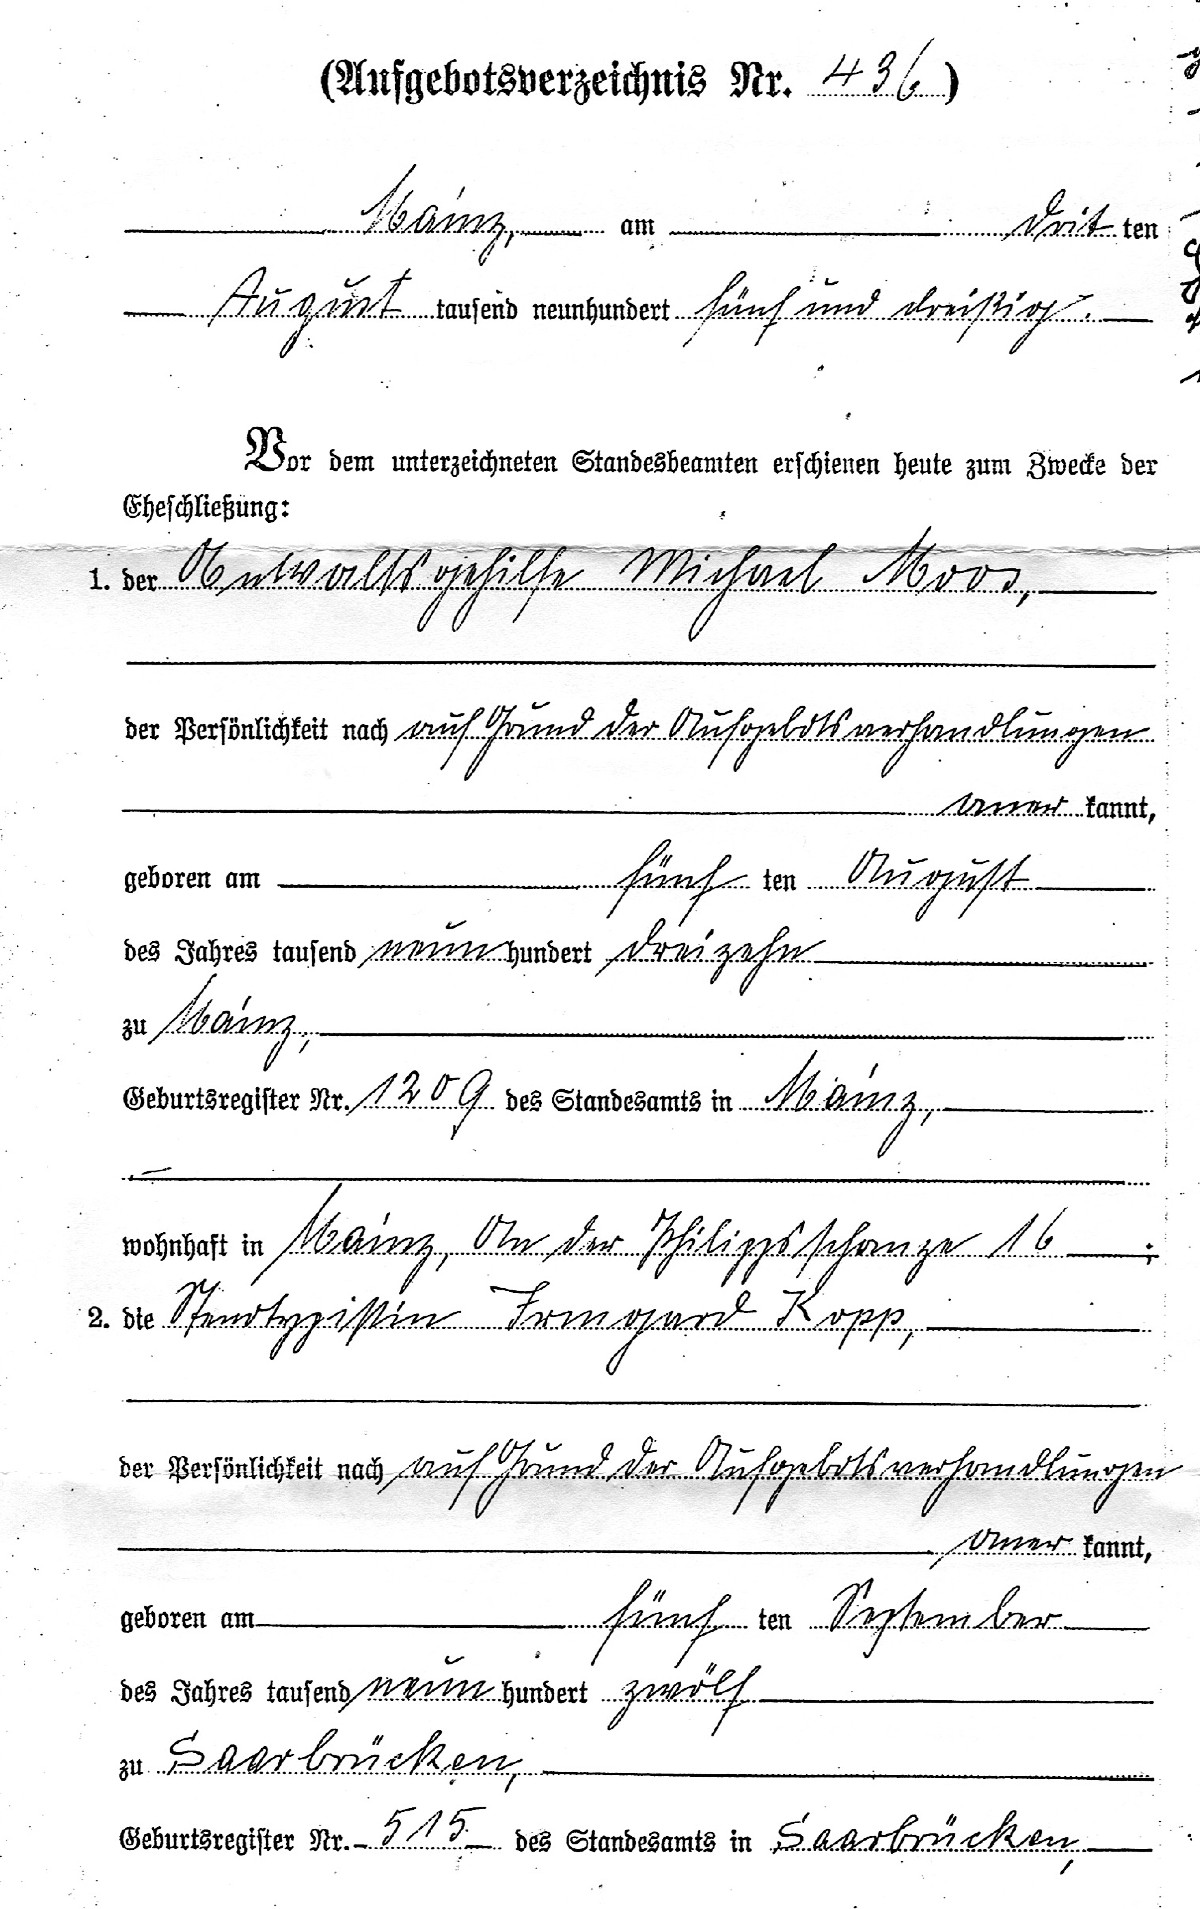 (Aufgebotsverzeichnis Nr. 436)
Mainz, am dritten
August tausend neunhundert fünf und dreißig.
Vor dem unterzeichneten Standesbeamten erschienen heute zum Zwecke der
Eheschließung:
1. der Anwaltsgehilfe Michael Moos,
der Persönlichkeit nach auf Grund der Aufgebotsverhandlungen
anerkannt,
geboren am fünften August
des Jahres tausend neunhundert dreizehn
zu Mainz,
Geburtsregister Nr. 1209 des Standesamts in Mainz,
wohnhaft in Mainz, An der Philippsschanze 16;
2. die Stenotypistin Irmgard Kopp,
der Persönlichkeit nach auf Grund der Aufgebotsverhandlungen
anerkannt,
geboren am fünften September
des Jahres tausend neunhundert zwölf
zu Saarbrücken,
Geburtsregister Nr. 515 des Standesamts in Saarbrücken,